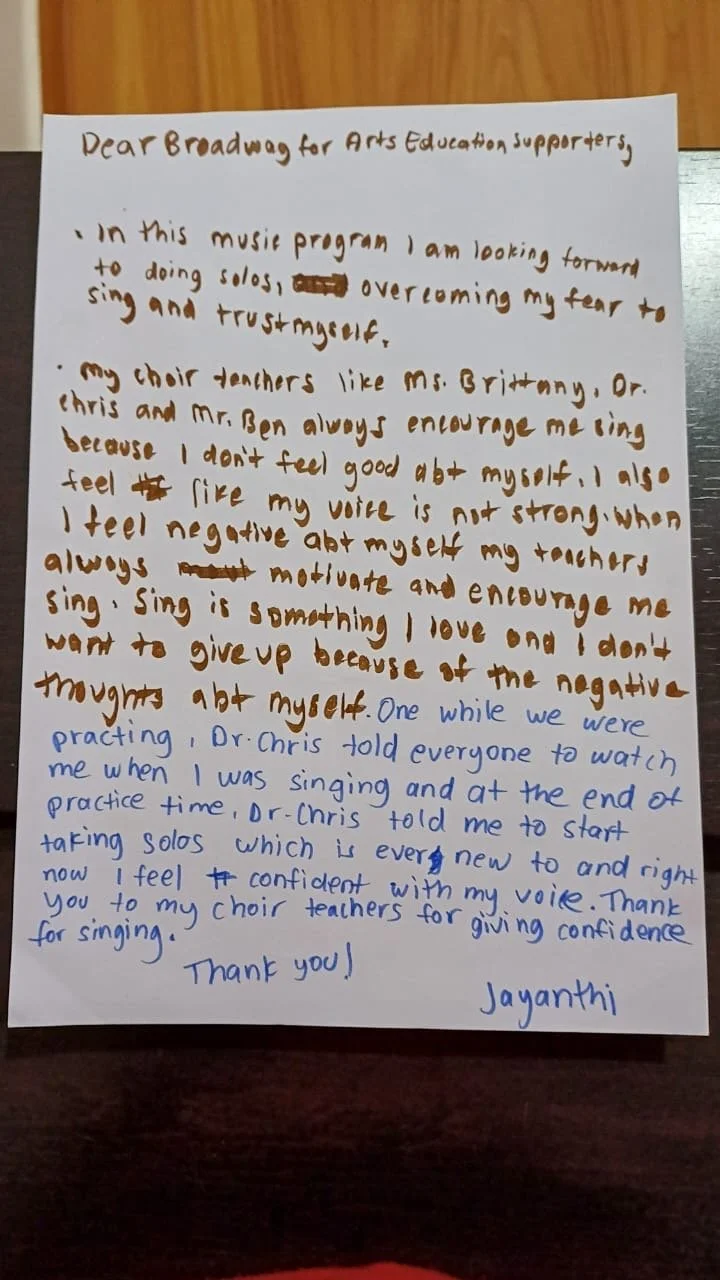 Dear Broadway for Arts Education Supporters,
. In this music program I am looking forward
to doing solos, overcoming my fear to
sing and trust myself.
. My choir teachers like Ms. Brittany, Dr.
Chris and Mr. Ben always encourage me sing
because I don't feel good abt myself. I also
feel like my voice is not strong. when
I feel negative abt myself my teachers
always motivate and encourage me
sing. Sing is something I love and I don't
want to give up because of the negative
thoughts abt myself. One while we were
practing, Dr. Chris told everyone to watch
me when I was singing and at the end of
practice time, Dr. Chris told me to start
taking solos which is every new to and right
now I feel confident with my voice. Thank
you to my choir teachers for giving confidence
for singing.
Thank you!
Jayanthi